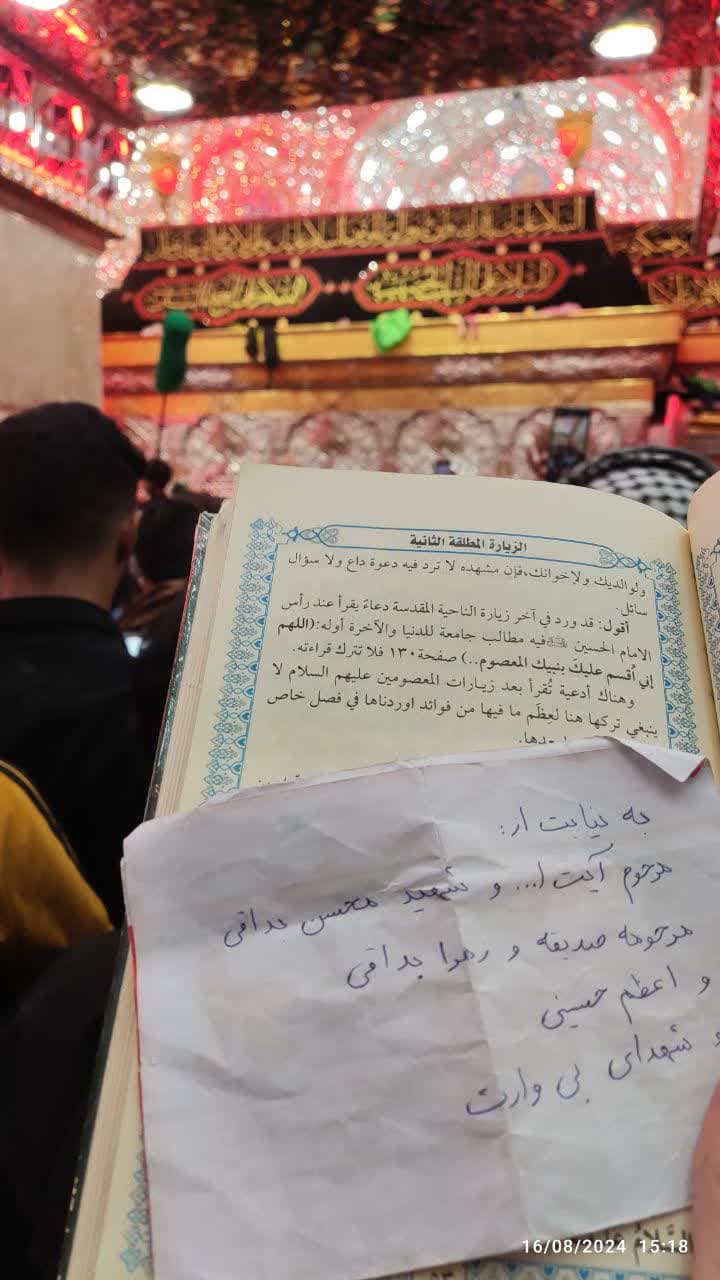 الزيارة المطلقة الثانية
ولوالديك ولإخوانك،فإن مشهده لا ترد فيه دعوة داع ولا سؤال
سائل.
أقول: قد ورد في آخر زيارة الناحية المقدسة دعاءً يقرأ عند رأس
الامام الحسين فيه مطالب جامعة للدنيا والآخرة أوله:(اللهم
إني أُقسم عليك بنبيك المعصوم..) صفحة١٣٠ فلا تترك قراءته.
وهناك أدعية تُقرأ بعد زيارات المعصومين عليهم السلام لا
ينبغي تركها هنا لعِظَم ما فيها من فوائد اوردناها في فصل خاص
به نیابت از:
مرحوم آیت ا... و شهید محسن بداقی
مرحومه صدیقه و زهرا بداقی
و اعظم حسینی
و شهدای بی وارث
16/08/2024 15:18